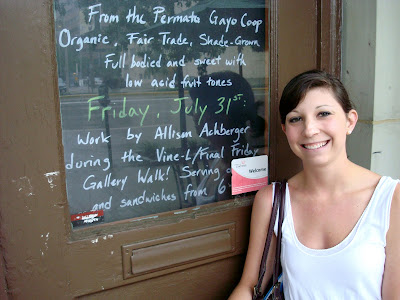 From the Permata Gayo Coop
Organic, Fair Trade, Shade-Grown
Full bodied and sweet with
low acid fruit tones
Friday, July 31ST:
Work by Allison Achberger
during the Vine-L/Final Friday
Gallery Walk! Serving
and sandwiches from 6
Welcome